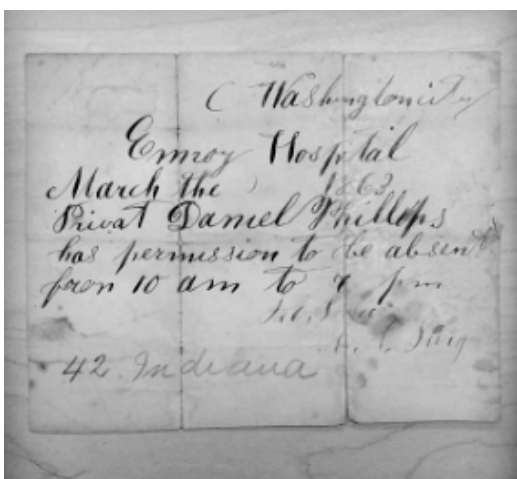 Washington city
Emroy Hospital
March the 1863
Privat Daniel Phillips
has permission to be absent
from 10 am to 7 pm
42 Indiana